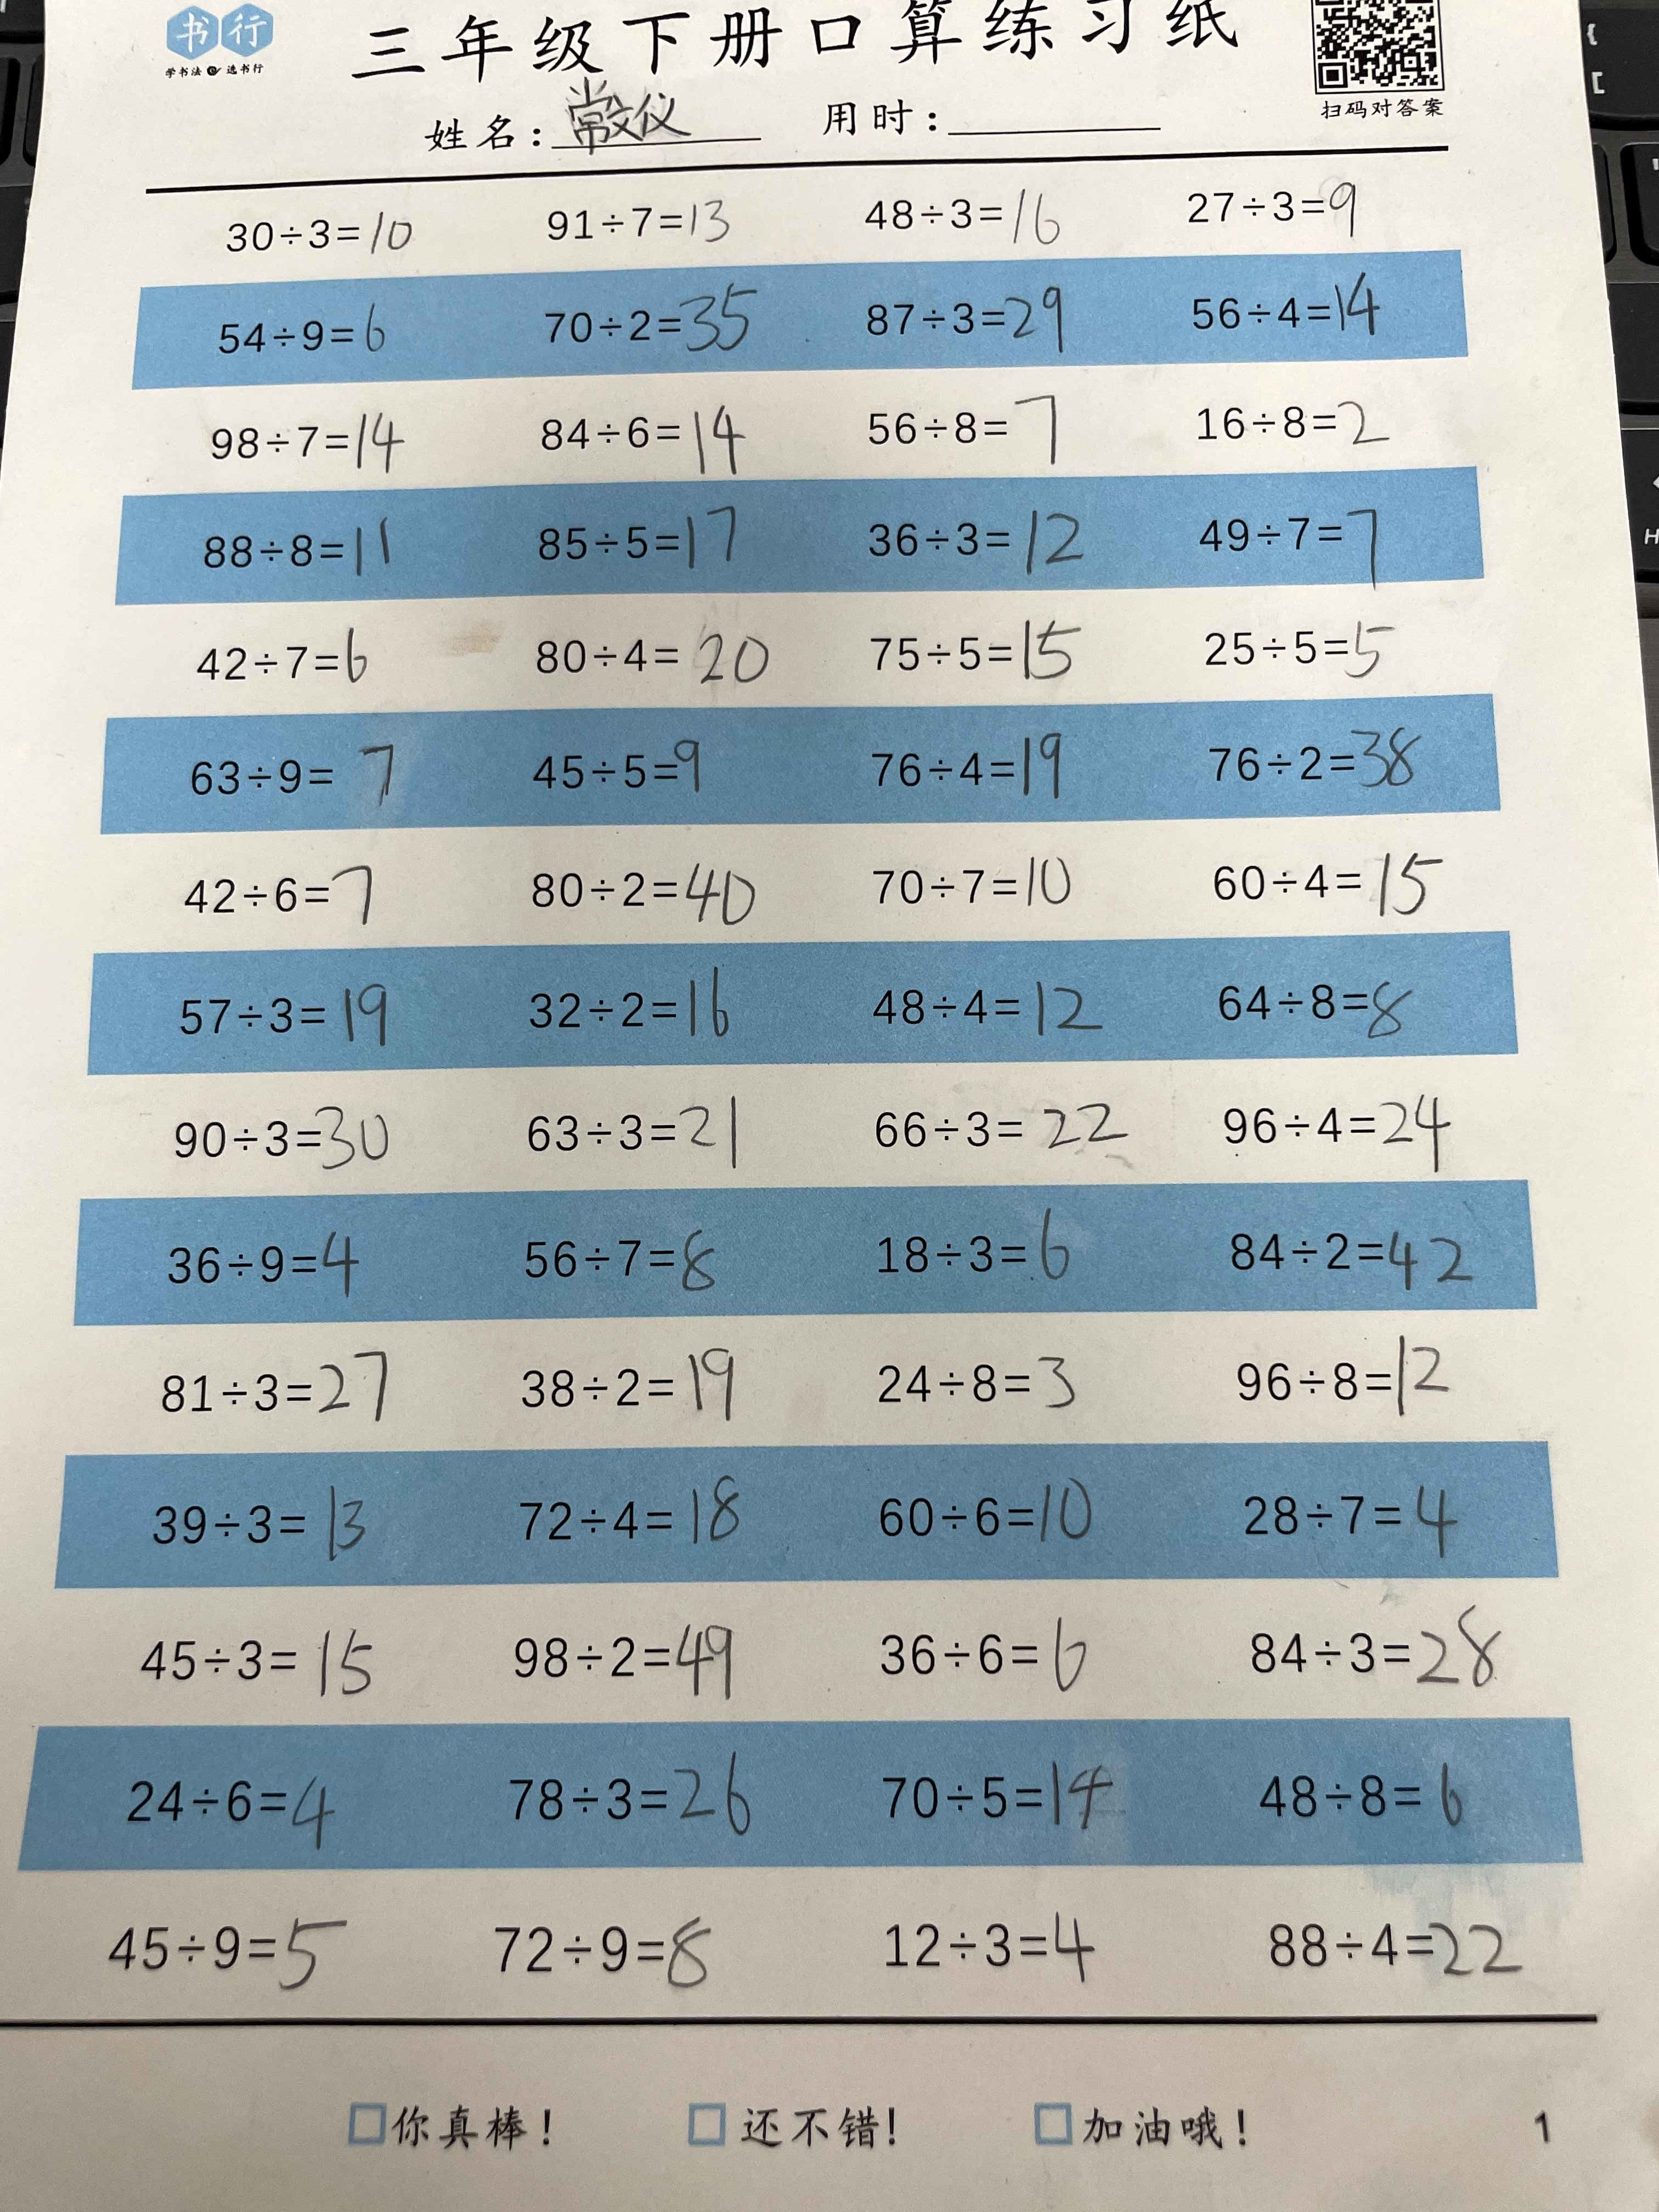 书行
学书法 选书行
三年级下册口算练习纸
扫码对答案
姓名: 常文仪 用时:
30÷3=10 91÷7=13 48÷3=16 27÷3=9
54÷9=6 70÷2=35 87÷3=29 56÷4=14
98÷7=14 84÷6=14 56÷8=7 16÷8=2
88÷8=11 85÷5=17 36÷3=12 49÷7=7
42÷7=6 80÷4=20 75÷5=15 25÷5=5
63÷9=7 45÷5=9 76÷4=19 76÷2=38
42÷6=7 80÷2=40 70÷7=10 60÷4=15
57÷3=19 32÷2=16 48÷4=12 64÷8=8
90÷3=30 63÷3=21 66÷3=22 96÷4=24
36÷9=4 56÷7=8 18÷3=6 84÷2=42
81÷3=27 38÷2=19 24÷8=3 96÷8=12
39÷3=13 72÷4=18 60÷6=10 28÷7=4
45÷3=15 98÷2=49 36÷6=6 84÷3=28
24÷6=4 78÷3=26 70÷5=14 48÷8=6
45÷9=5 72÷9=8 12÷3=4 88÷4=22
你真棒! 还不错! 加油哦! 1